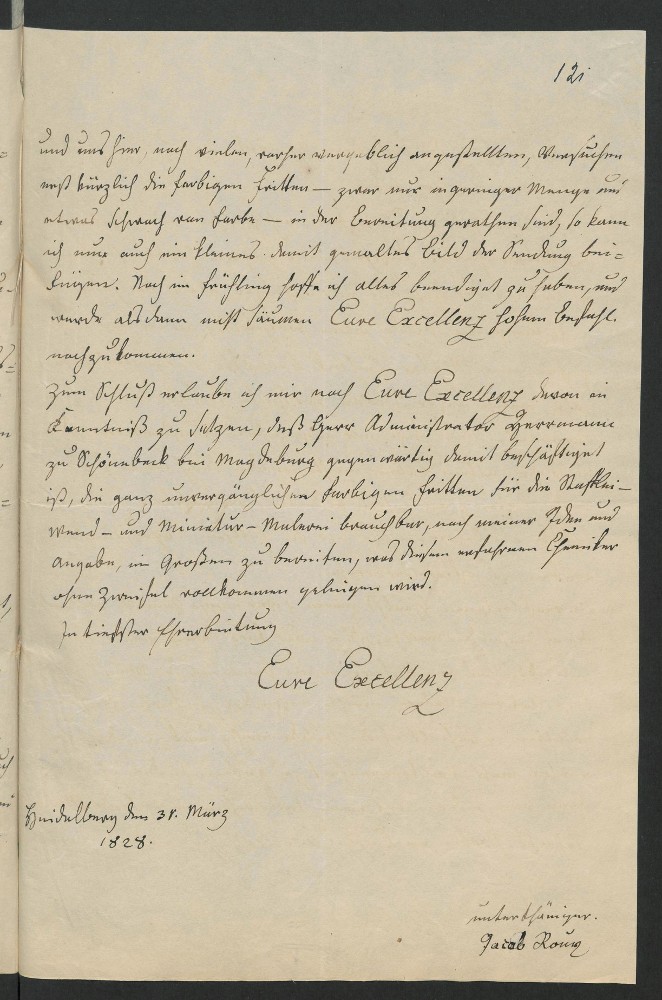 121
und uns hier, nach vielen, vorher vergeblich angestellten, Versuchen
erst kürzlich die farbigen Fritten — zwar nur in geringer Menge und
etwas schwach von Farbe — in der Bereitung gerathen sind, so kann
ich nur auch ein kleines damit gemaltes Bild der Sendung bei=
fügen. Noch im Frühling hoffe ich alles beendiget zu haben, und
werde alsdann nicht säumen Eure Excellenz hohem Befehl
nachzukommen.
Zum Schluß erlaube ich mir noch Eure Excellenz davon in
Kenntniß zu setzen, daß Herr Administrator Herrmann
zu Schönebeck bei Magdeburg gegenwärtig damit beschäftiget
ist, die ganz unvergänglichen farbigen Fritten für die Staffelei-
Wand- und Miniatur-Malerei brauchbar, nach meiner Idee und
Angabe, im Großen zu bereiten, was diesem erfahrnen Chemiker
ohne Zweifel vollkommen gelingen wird.
In tiefster Ehrerbietung
Eure Excellenz
Heidelberg den 31. März
1828.
unterthäniger.
Jacob Roux